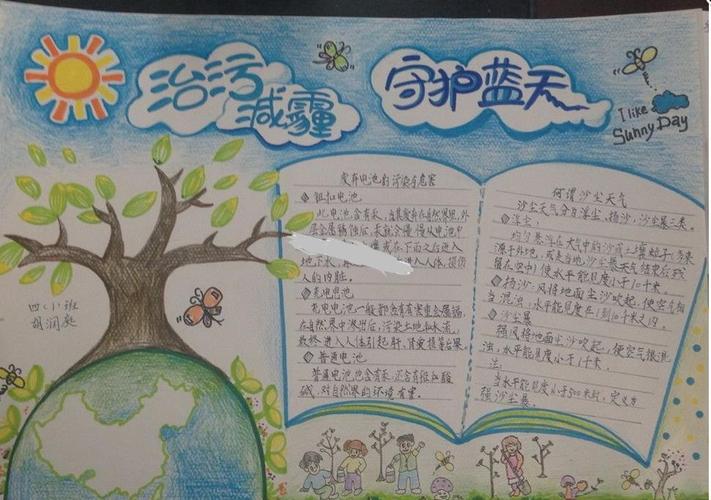 治污
减霾
守护蓝天
I like
Sunny Day
废弃电池的污染与危害
钮扣电池
此电池含有汞,当其废弃在自然界里,外
层金属锈蚀后,汞就会慢慢从电池中
或在下雨之后进入
地下水,
进入人体,损伤
人的内脏。
充电电池
充电电池一般都含有有害重金属镉,
在自然界中渗出后,污染土地和水道,
最终进入人体引起肝、肾衰损等后果。
普通电池
普通电池也含有汞,还含有锰和酸
碱,对自然界的环境有害。
何谓沙尘天气
沙尘天气分为浮尘、扬沙,沙尘暴三类。
浮尘:
均匀悬浮在大气中的沙或土壤粒子(多来
源于外地,或是当地沙尘暴天气结束后残
留在空中)使水平能见度小于10千米。
扬沙:风将地面尘沙吹起,使空气相
当混浊,水平能见度在1到10千米之内。
沙尘暴
强风将地面尘沙吹起,使空气很混
浊,水平能见度小于1千米。
当水平能见度小于500米时,定义为
强沙尘暴。
四(小)班
胡润庭